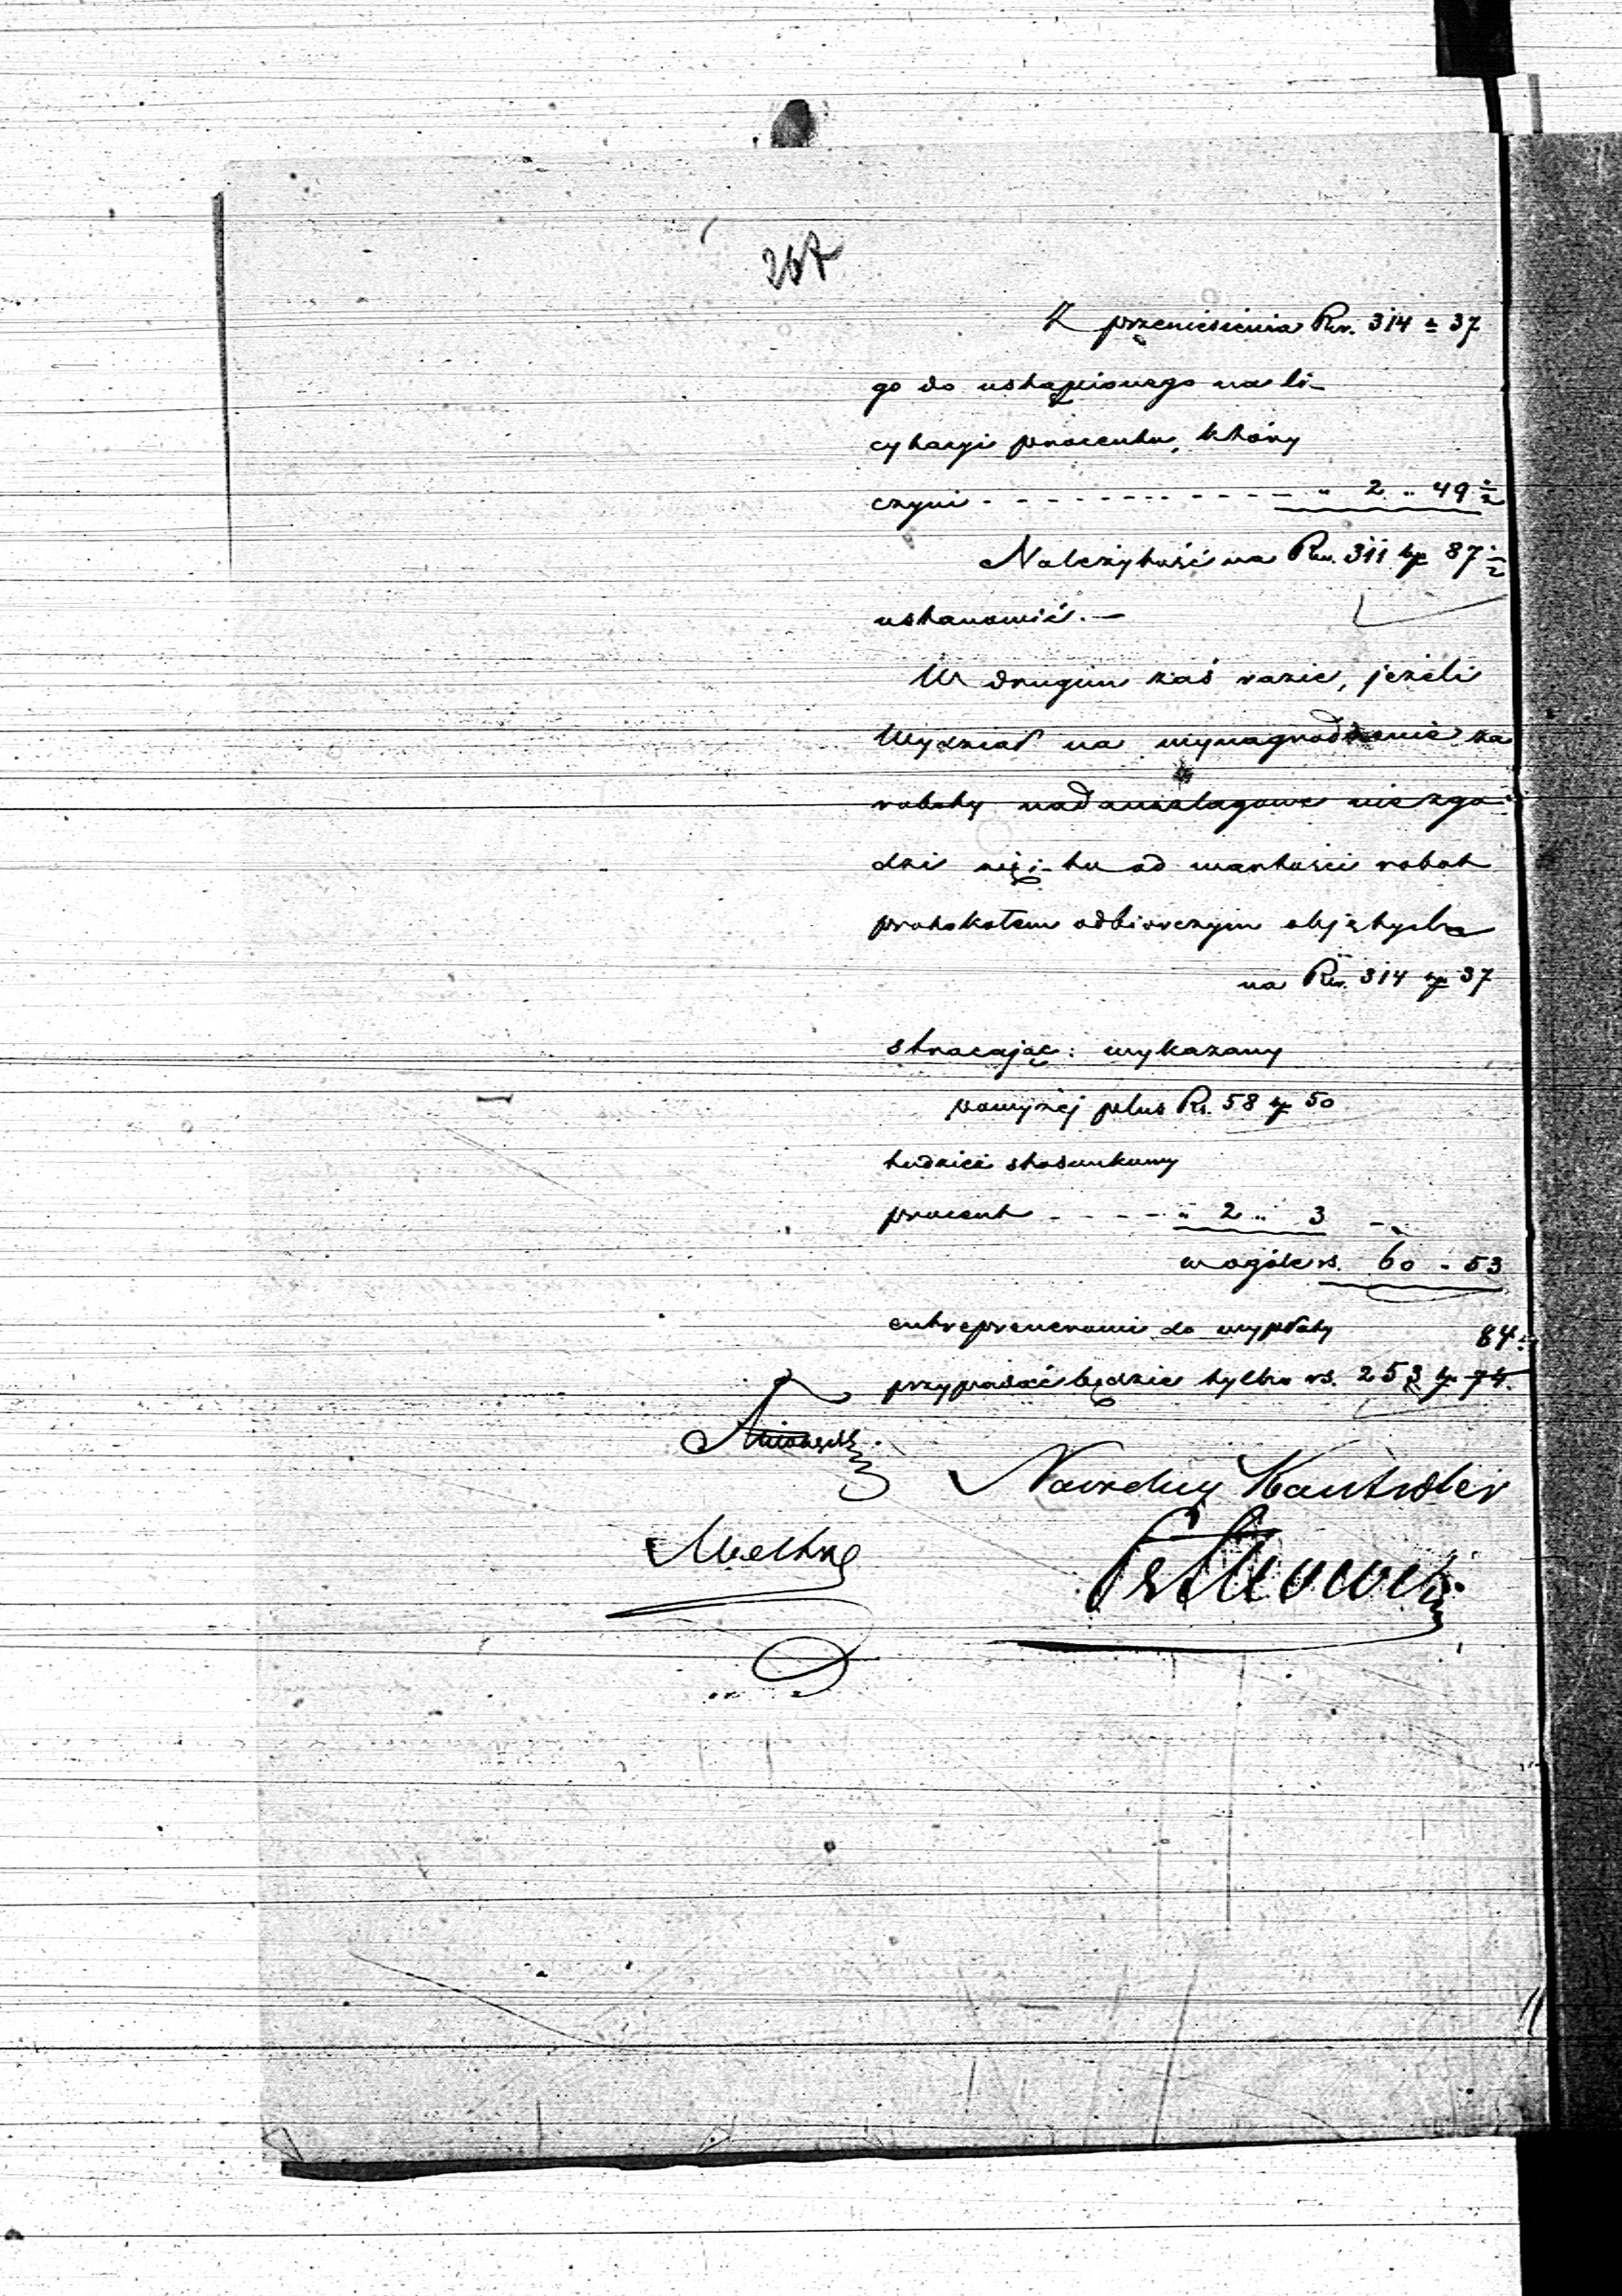 267
Z przeniesienia Rsr. 314 k 37
go do ustąpionego na li-
cytacyi procentu, który
czyni - - - - - - - - - - - " 2 " 49 ½
Należytość na Rsr. 311 kp 87 ½
ustanowić. —
W drugim zaś razie, jeżeli
Wydział na wynagrodzenie za
roboty nadanszlagowe nie zgo-
dzi się; - tu od wartości robot
protokołem odbiorczym objętych
na Rsr. 314 kp 37
stracając: wykazany
powyżej plus Rs. 58 kp 50
tudzież stosunkowy
procent - - - - " 2 " 3
w ogóle rs. 60 - 53
entreprenerowi do wypłaty
84
przypadać będzie tylko rs. 253 kp 74.
Naczelny Kontroler